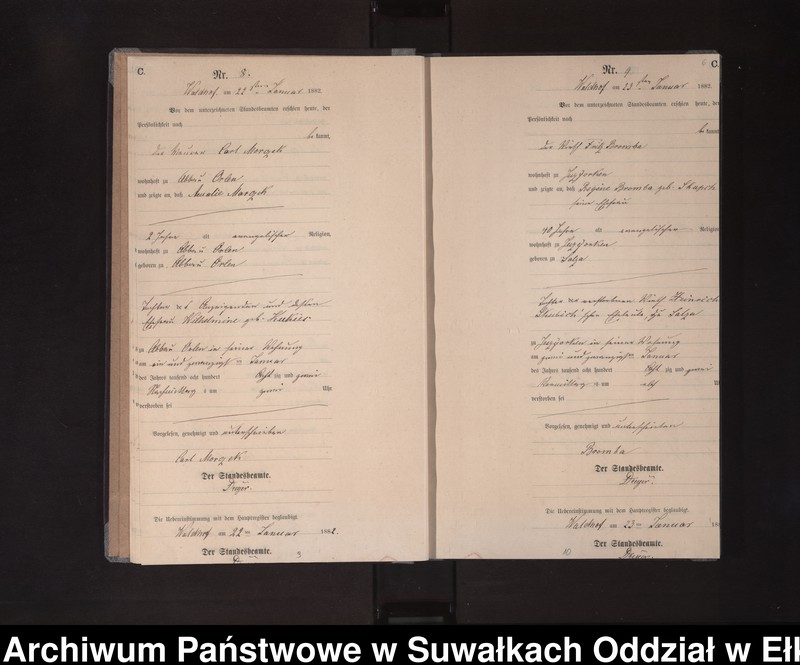 C.
Nr. 8.
Waldhof am 22 ten Januar 1882.
Vor dem unterzeichneten Standesbeamten erschien heute, der
Persönlichkeit nach
be kannt,
Carl Morczek
wohnhaft zu Abbau Orlen
und zeigte an, daß Amalie Morczek
2 Jahre alt evangelischer Religion,
wohnhaft zu Abbau Orlen
geboren zu Abbau Orlen
Tochter des Anzeigenden und dessen
Ehefrau Wilhelmine geb.
zu Abbau Orlen in seiner Wohnung
am ein und zwanzigsten Januar
des Jahres tausend acht hundert acht zig und zwei
Nachmittag s um zwei Uhr
verstorben sei
Vorgelesen, genehmigt und unterschrieben
Carl Morczek
Der Standesbeamte.
Die Uebereinstimmung mit dem Hauptregister beglaubigt.
Waldhof am 22 ten Januar 1882.
Der Standesbeamte.
9
C.
Nr. 9.
Waldhof am 23 ten Januar 1882.
Vor dem unterzeichneten Standesbeamten erschien heute, der
Persönlichkeit nach
be kannt,
der Wirth Fritz Bromba
wohnhaft zu
und zeigte an, daß Regine Bromba geb.
seine Ehefrau
Jahre alt evangelischer Religion
wohnhaft zu
geboren zu Salza
Tochter der verstorbenen Wirth Heinrich
Eheleute zu Salza
zu in seiner Wohnung
am zwei und zwanzigsten Januar
des Jahres tausend acht hundert acht zig und zwei
Vormittag s um elf U
verstorben sei
Vorgelesen, genehmigt und unterschrieben
Bromba
Der Standesbeamte.
Die Uebereinstimmung mit dem Hauptregister beglaubigt.
Waldhof am 23 ten Januar 18
Der Standesbeamte.
10
Archiwum Państwowe w Suwałkach Oddział w Ełk